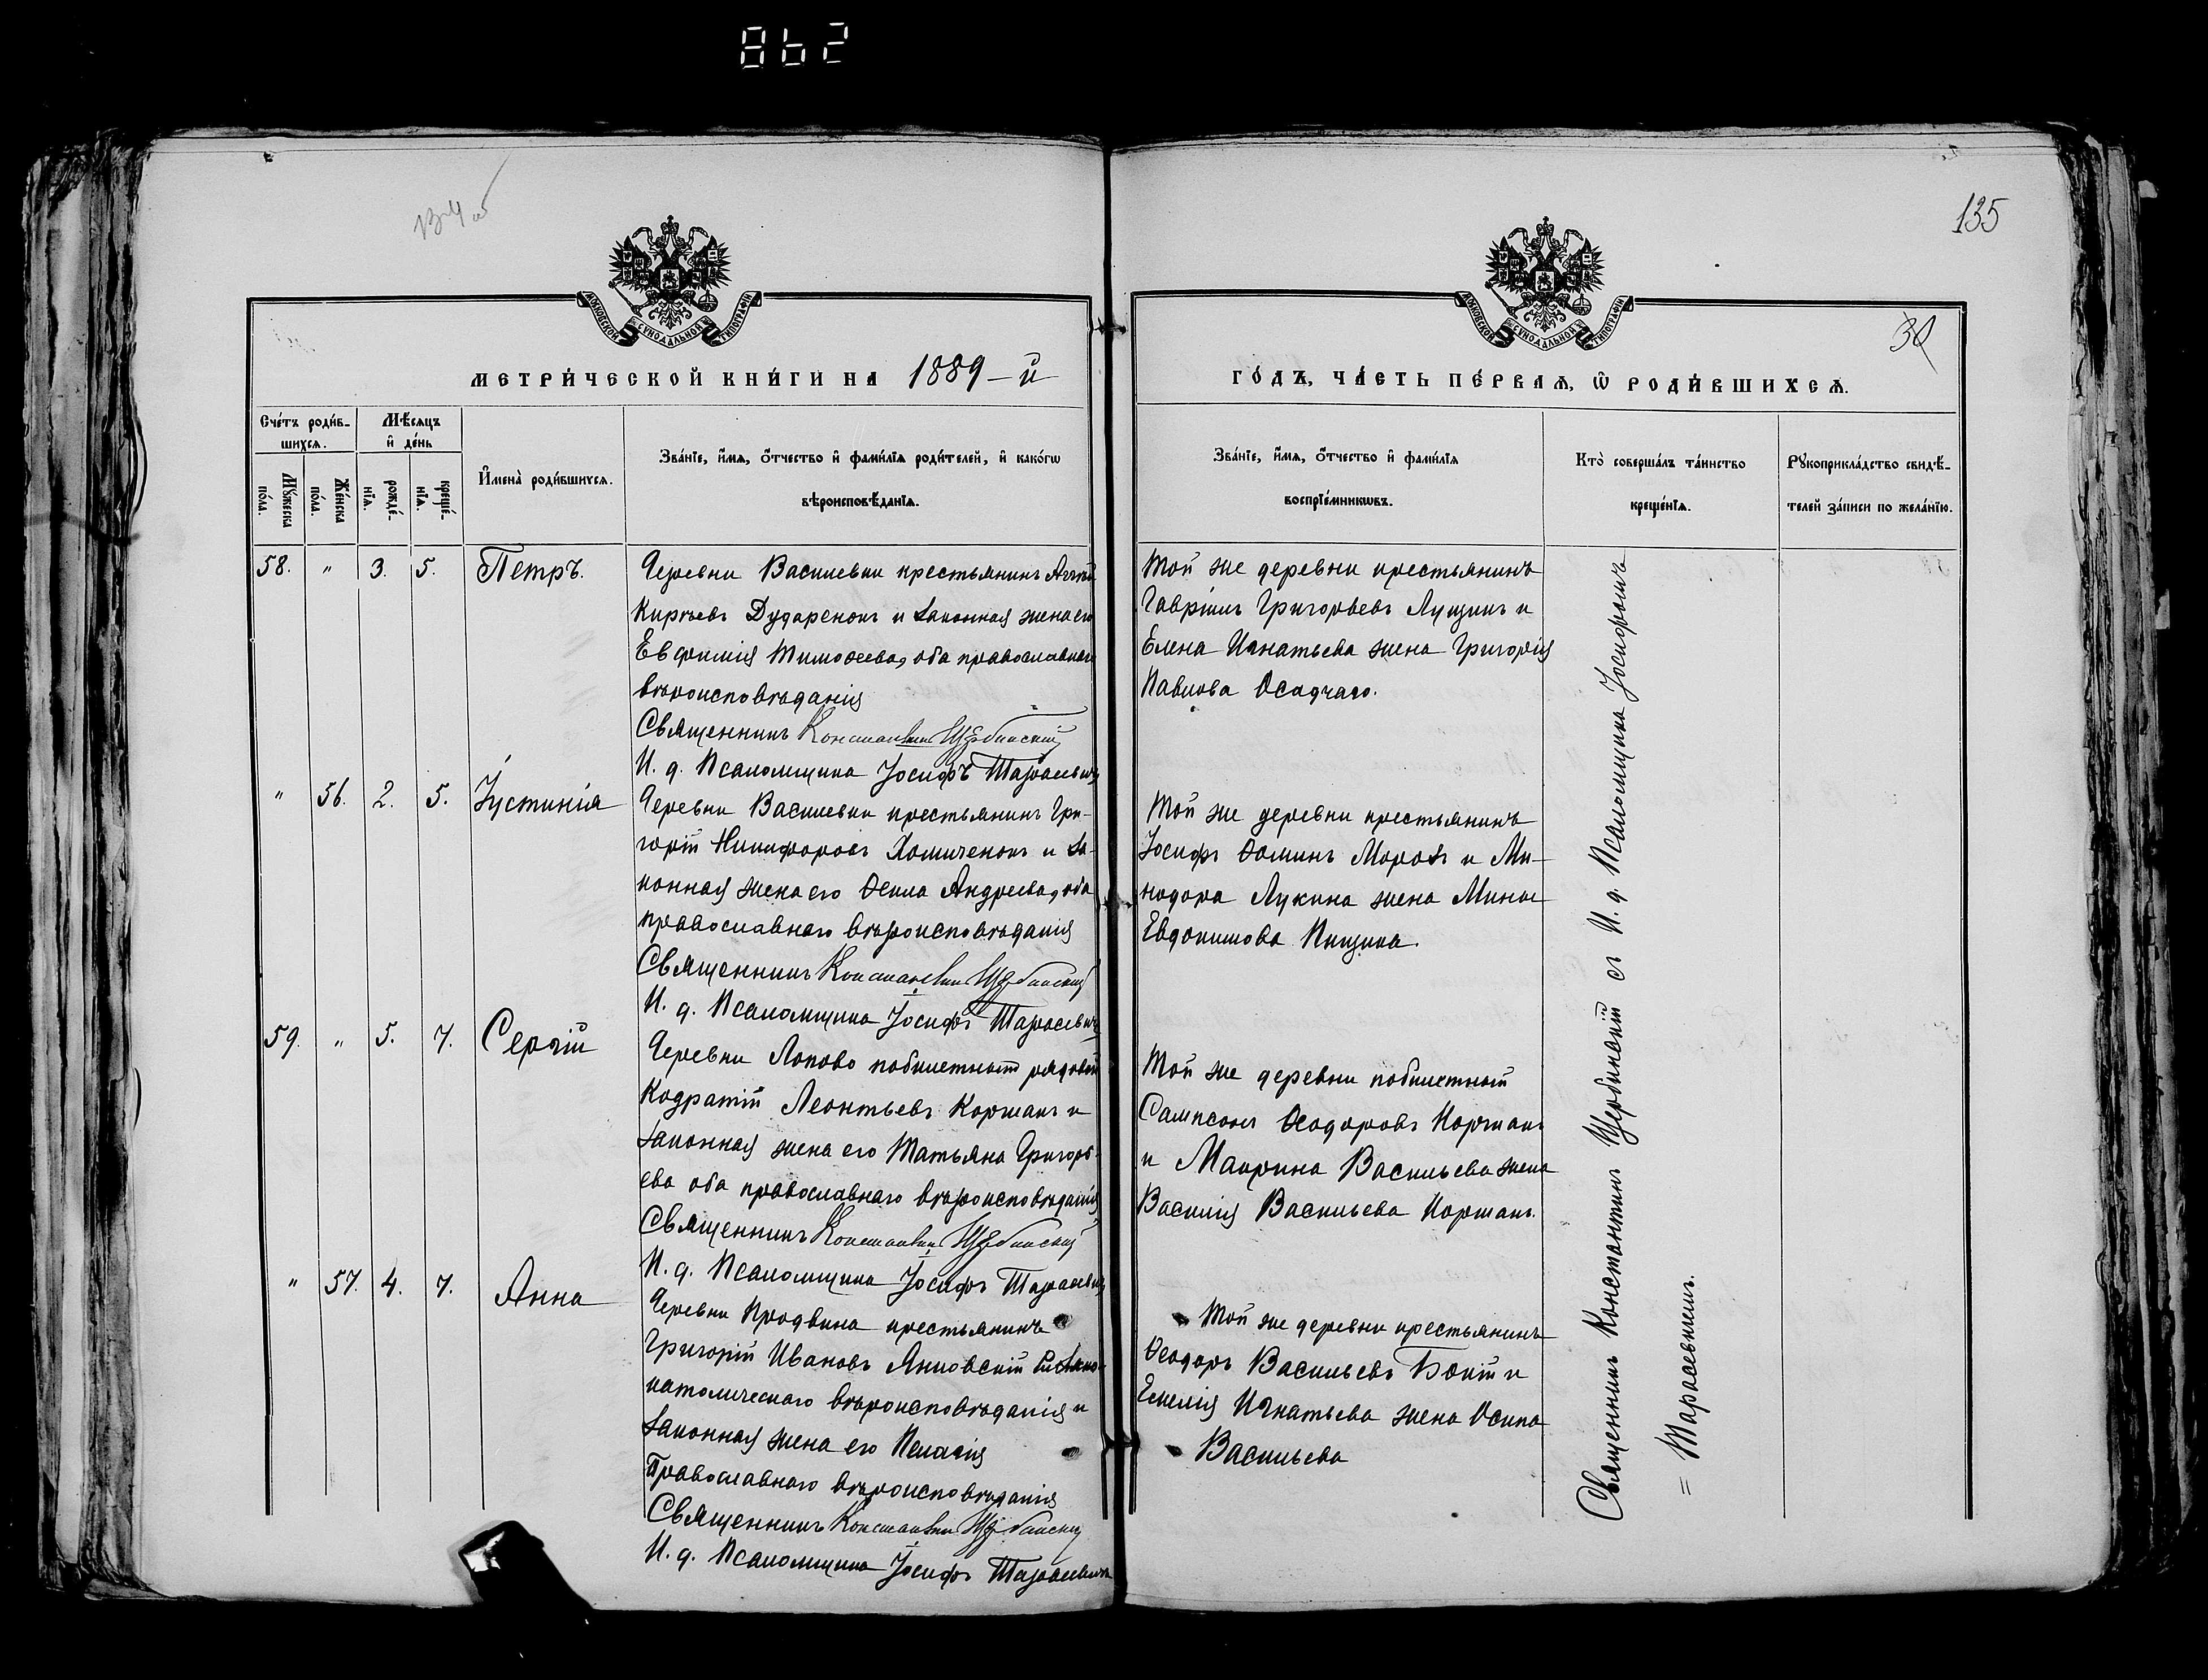 862
135
30
МОСКОВСКОЙ СѴНОДАЛЬНОЙ ТИПОГРАФІИ
МОСКОВСКОЙ СѴНОДАЛЬНОЙ ТИПОГРАФІИ
МЕТРИ́ЧЕСКОЙ КНИ́ГИ НА 1889-й
ГО́ДЪ, ЧА́СТЬ ПЕ́РВАѦ, Ѡ҆ РОДИ́ВШИХСѦ.
Сче́тъ роди́в-
шихсѧ.
Мѣ́сѧцъ
и҆ де́нь
Мꙋ́жеска
по́ла.
Же́нска
по́ла.
рожде́-
нїѧ.
креще́-
нїѧ.
И҆мена̀ роди́вшихсѧ.
Зва́нїе, и҆́мѧ, ѻ҆́тчество и҆ фами́лїѧ роди́телей, и҆ како́гѡ
вѣроисповѣ́данїѧ.
Зва́нїе, и҆́мѧ, ѻ҆́тчество и҆ фами́лїѧ
воспрїе́мникѡвъ.
Кто̀ соверша́лъ та́инство
креще́нїѧ.
Рꙋкоприкла́дство свидѣ́-
телей за́писи по жела́нїю.
58. " 3. 5. Петръ.
Деревни Василевки крестьянинъ
Киріевъ Дударенокъ и законная жена его
Евфимія Тимоѳеева, оба православнаго
вѣроисповѣданія
Священникъ Константинъ Щербинскій
И. д. Псаломщика Іосифъ Тарасевичъ
Той же деревни крестьянинъ
Гавріилъ Григорьевъ Лущикъ и
Елена Игнатьева жена Григорія
Павлова Осадчаго.
" 56. 2. 5. Іустинія
Деревни Василевки крестьянинъ Гри-
горій Никифоровъ Хомиченокъ и за-
конная жена его Ѳекла Андреева, оба
православнаго вѣроисповѣданія
Священникъ Константинъ Щербинскій
И. д. Псаломщика Іосифъ Тарасевичъ
Той же деревни крестьянинъ
Іосифъ Ѳоминъ Морозъ и Ми-
нодора Лукина жена Мины
Евдокимова Пищика.
59. " 5. 7. Сергій
Деревни Лопово побилетный рядовой
Кодратій Леонтьевъ Коржакъ и
законная жена его Татьяна Григорь-
ева оба православнаго вѣроисповѣданія
Священникъ Константинъ Щербинскій
И. д. Псаломщика Іосифъ Тарасевичъ
Той же деревни побилетный
Сампсонъ Ѳеодоровъ Коржакъ
и Маврина Васильева жена
Василія Васильева Коржакъ.
" 57. 4. 7. Анна
Деревни Продвина крестьянинъ
Григорій Ивановъ Янковскій Римско
католическаго вѣроисповѣданія и
законная жена его Пелагія
Православнаго вѣроисповѣданія
Священникъ Константинъ Щербинскій
И. д. Псаломщика Іосифъ Тарасевичъ
Той же деревни крестьянинъ
Ѳеодоръ Васильевъ Бокій и
Игнатьева жена Осипа
Васильева
Священникъ Константинъ Щербинскій съ И. д. Псаломщика Іосифомъ
= Тарасевичемъ.